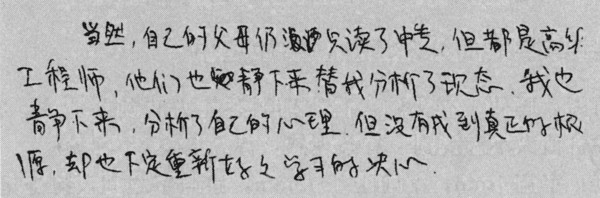 当然,自己的父母仍只读了中专,但都是高级
工程师,他们也静下来替我分析了现态.我也
静下来,分析了自己的心理.但没有找到真正的根
源,却也下定重新好好学习的决心.